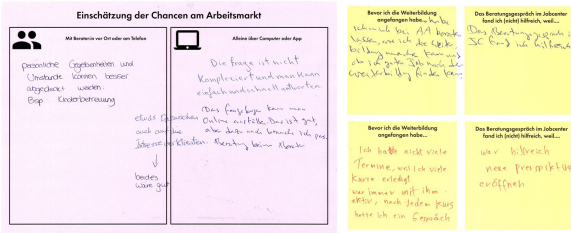 Einschätzung der Chancen am Arbeitsmarkt
Mit Berater:in vor Ort oder am Telefon
persönliche Gegebenheiten und
Umstände können besser
abgedeckt werden.
Bsp Kinderbetreuung
Alleine über Computer oder App
Die Frage ist nicht
Kompleziert und man kann
einfach und schnell antworten.
kan man
Online Das ist gut,
aber brauche ich pers.
Beratung beim
auch auf die
Interessen der Klienten.
beides
wäre gut
Bevor ich die Weiterbildung
angefangen habe... habe
ich mich bei AA beraten
lassen, wie ich die Weiter
bildung machen kann und
ob ich gute Job nach der
Weiterbildung finden kann
Das Beratungsgespräch im Jobcenter
fand ich (nicht) hilfreich, weil...
Das Beratungsgespräch
JC fand ich hilfreich
Bevor ich die Weiterbildung
angefangen habe...
Ich hatte nicht viele
Termine, weil ich viele
Kurse erledigt
war immer mit ihm
aktiv, nach Jedem kurs
hatte ich ein Gespräch
Das Beratungsgespräch im Jobcenter
fand ich (nicht) hilfreich, weil...
war hilfreich
neue
eröffnen